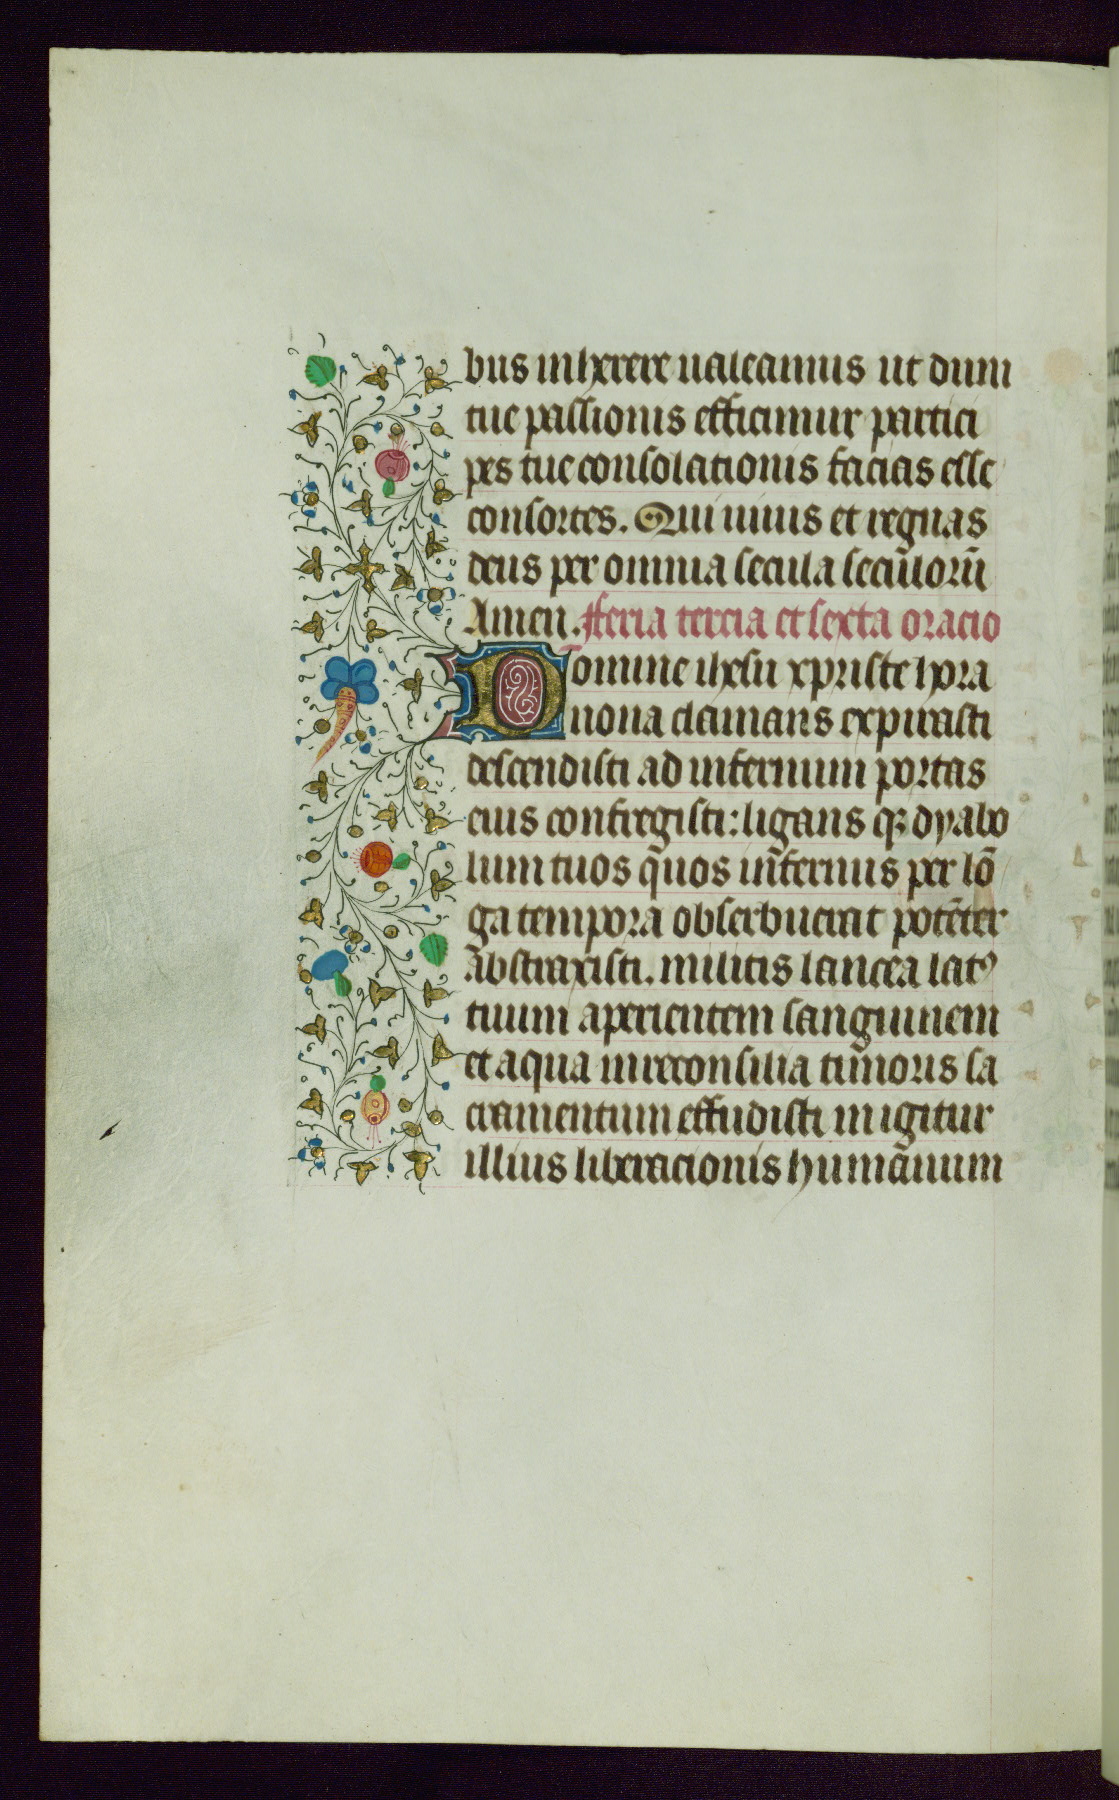 bus inherere ualeamus ut dum
tue passionis efficimur partici
pes tue consolationis facias esse
consortes. Qui uiuis et regnas
deus per omnia secula seculorū
Amen. Feria tercia et sexta oracio
Domine ihesu xpriste hora
nona clamans expirasti
descendisti ad infernum portas
eius confregisti: ligans qꝫ dyabo
lum tuos q̄uos īnfernus per lō
ga tempora obserbuerat potēter
abstraxisti. militis lancea latꝰ
tuum aperientem sanguinem
et aqua in reconsilia tūnoris sa
cramentum effudisti in igitur
illius liberacionis humāuum